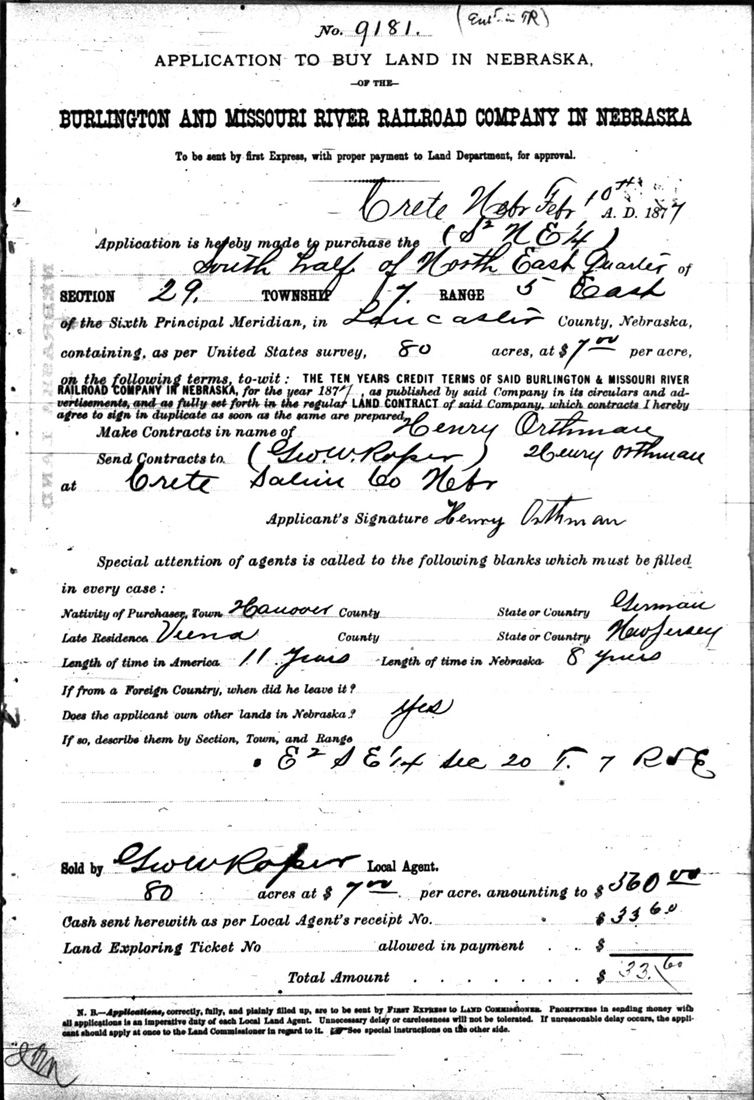 No. 9181. (Ent'd in TR)
APPLICATION TO BUY LAND IN NEBRASKA,
—OF THE—
BURLINGTON AND MISSOURI RIVER RAILROAD COMPANY IN NEBRASKA
To be sent by first Express, with proper payment to Land Department, for approval.
Crete Nebr Febr 10th A. D. 1877
Application is hereby made to purchase the (S2 N E 1/4)
South half of North East Quarter of
SECTION 29. TOWNSHIP 7. RANGE 5 East
of the Sixth Principal Meridian, in Lancaster County, Nebraska,
containing, as per United States survey, 80 acres, at $7.00 per acre,
on the following terms, to-wit: THE TEN YEARS CREDIT TERMS OF SAID BURLINGTON & MISSOURI RIVER
RAILROAD COMPANY IN NEBRASKA, for the year 1877, as published by said Company in its circulars and ad-
vertisements, and as fully set forth in the regular LAND CONTRACT of said Company, which contracts I hereby
agree to sign in duplicate as soon as the same are prepared.
Make Contracts in name of Henry Orthman
Send Contracts to (Geo W. Roper) Henry Orthman
at Crete Saline Co Nebr
Applicant's Signature Henry Orthman
Special attention of agents is called to the following blanks which must be filled
in every case:
Nativity of Purchaser, Town Hanover County State or Country German
Late Residence Viena County State or Country New Jersey
Length of time in America 11 Years Length of time in Nebraska 8 years
If from a Foreign Country, when did he leave it?
Does the applicant own other lands in Nebraska? yes
If so, describe them by Section, Town, and Range
E2 S E 1/4 Sec 20 T. 7 R 5 E
Sold by Geo W Roper Local Agent.
80 acres at $7.00 per acre, amounting to $560.00
Cash sent herewith as per Local Agent's receipt No. $33.60
Land Exploring Ticket No allowed in payment . . $
Total Amount . . . . . . . $33.60
N. B.—Applications, correctly, fully, and plainly filled up, are to be sent by FIRST EXPRESS TO LAND COMMISSIONER. PROMPTNESS in sending money with
all applications is an imperative duty of each Local Land Agent. Unnecessary delay or carelessness will not be tolerated. If unreasonable delay occurs, the appli-
cant should apply at once to the Land Commissioner in regard to it. ☞See special instructions on the other side.